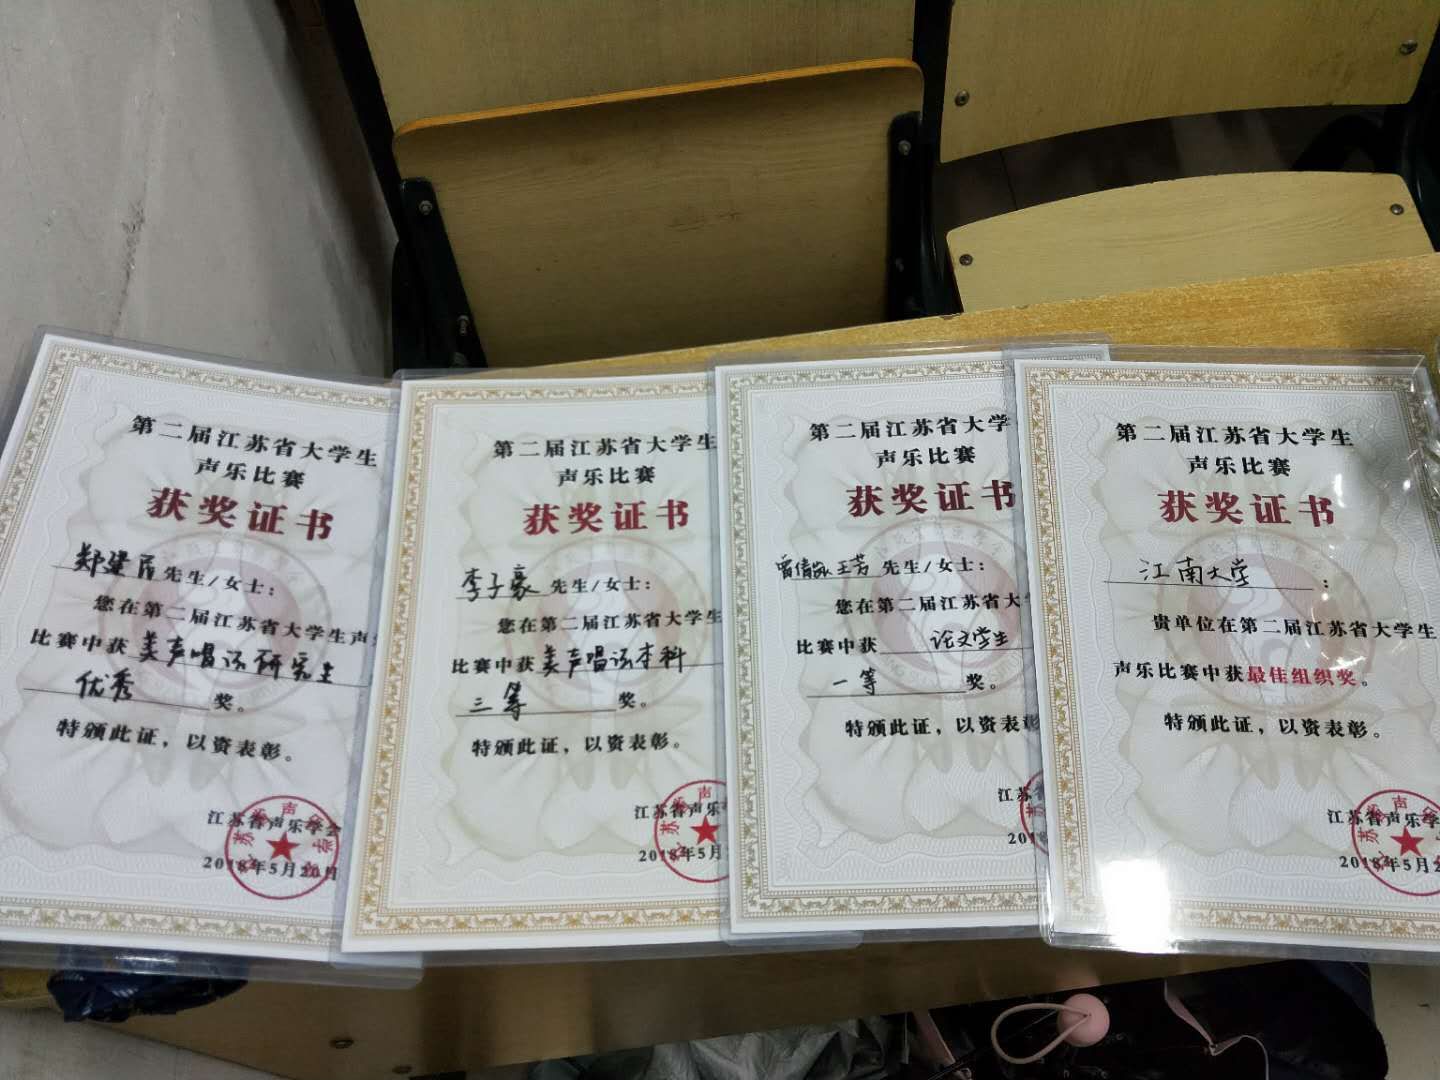 第二届江苏省大学生
声乐比赛
获奖证书
先生/女士：
您在第二届江苏省大学生声
比赛中获 美声唱法研究生
优秀 奖。
特颁此证，以资表彰。
江苏省声乐学会
2018年5月20日
第二届江苏省大学生
声乐比赛
获奖证书
李子豪 先生/女士：
您在第二届江苏省大学生
比赛中获 美声唱法本科
三等 奖。
特颁此证，以资表彰。
江苏省声乐学
2018年5月
第二届江苏省大学
声乐比赛
获奖证书
王芳 先生/女士：
您在第二届江苏省大
比赛中获 论文学生
一等 奖。
特颁此证，以资表彰
江苏
2018
第二届江苏省大学生
声乐比赛
获奖证书
江南大学：
贵单位在第二届江苏省大学生
声乐比赛中获最佳组织奖。
特颁此证，以资表彰。
江苏省声乐学
2018年5月2